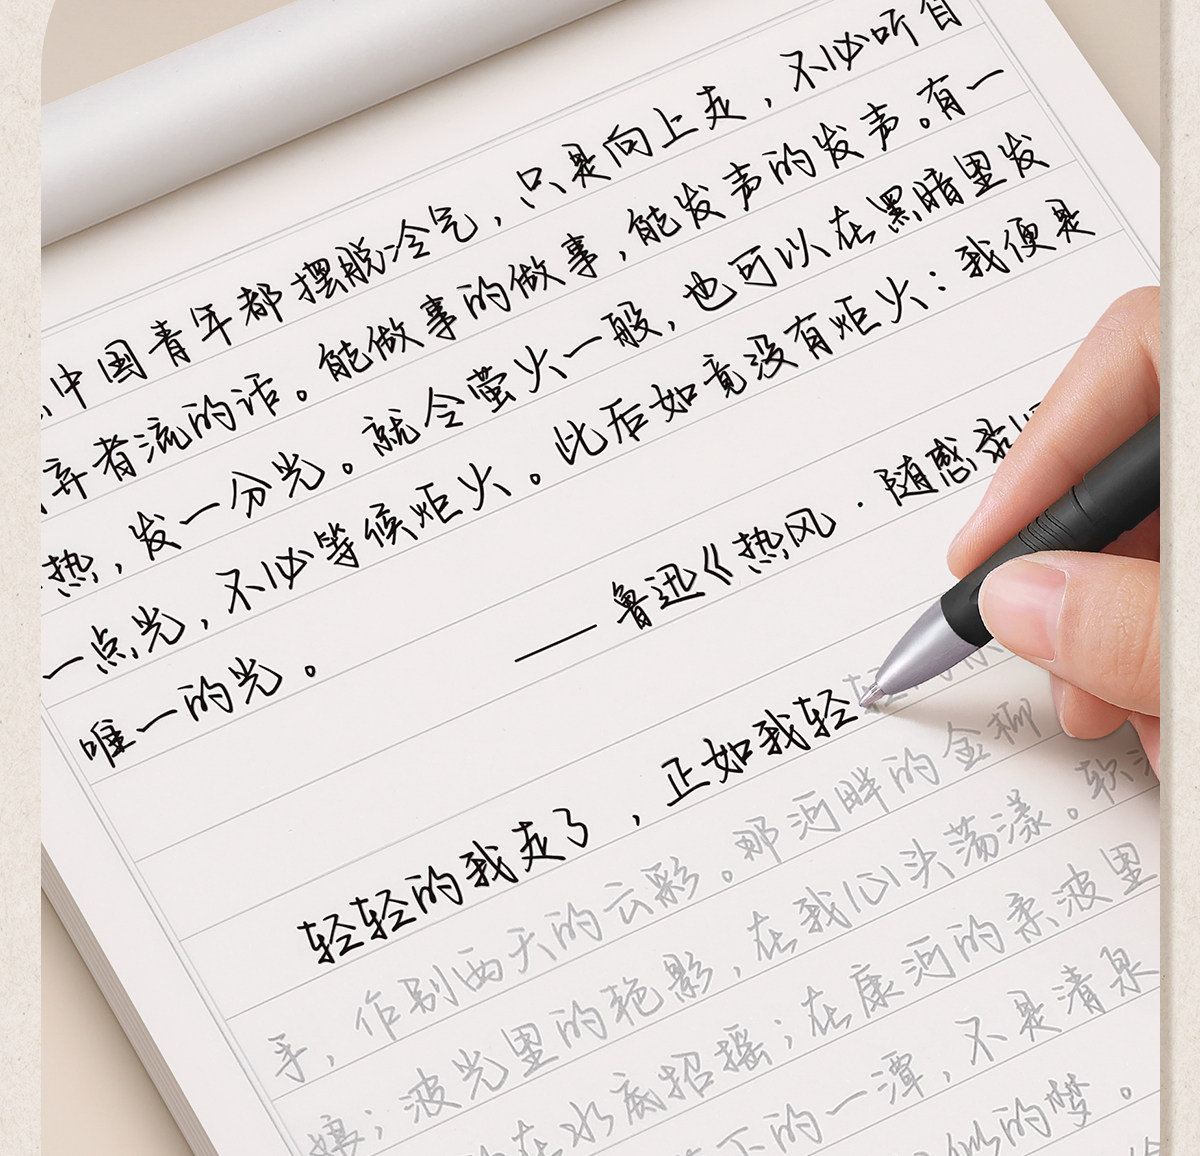 中国青年都摆脱冷气，只是向上走，不必听自
弃者流的话。能做事的做事，能发声的发声。有一
热，发一分光。就令萤火一般，也可以在黑暗里发
一点光，不必等候炬火。此后如竟没有炬火：我便是
唯一的光。
——鲁迅《热风·随感录
轻轻的我走了，正如我轻轻
手，作别西天的云彩。那河畔的金柳
娘；波光里的艳影，在我心头荡漾。软
在水底招摇；在康河的柔波里
下的一潭，不是清泉
似的梦。